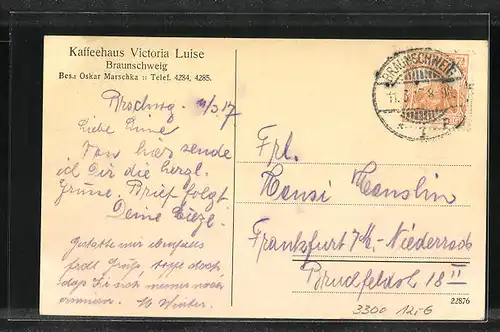 Kaffeehaus Victoria Luise
Braunschweig
Bes.: Oskar Marschka :: Telef. 4284, 4285.
17
Liebe
Von hier sende
ich Dir die herzl.
Grüsse. Brief folgt
Deine
Gestatte mir ebenfalls
doch,
daß Sie sich meiner noch
erinnern. Winter.
BRAUNSCHWEIG
Frl.
Hansi
Frankfurt a/M.-Niederrad
18 II
22876
3300 12.-G